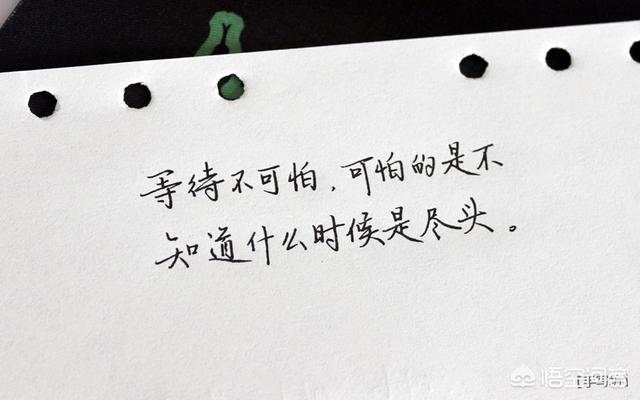 等待不可怕，可怕的是不
知道什么时候是尽头。
悟空问答